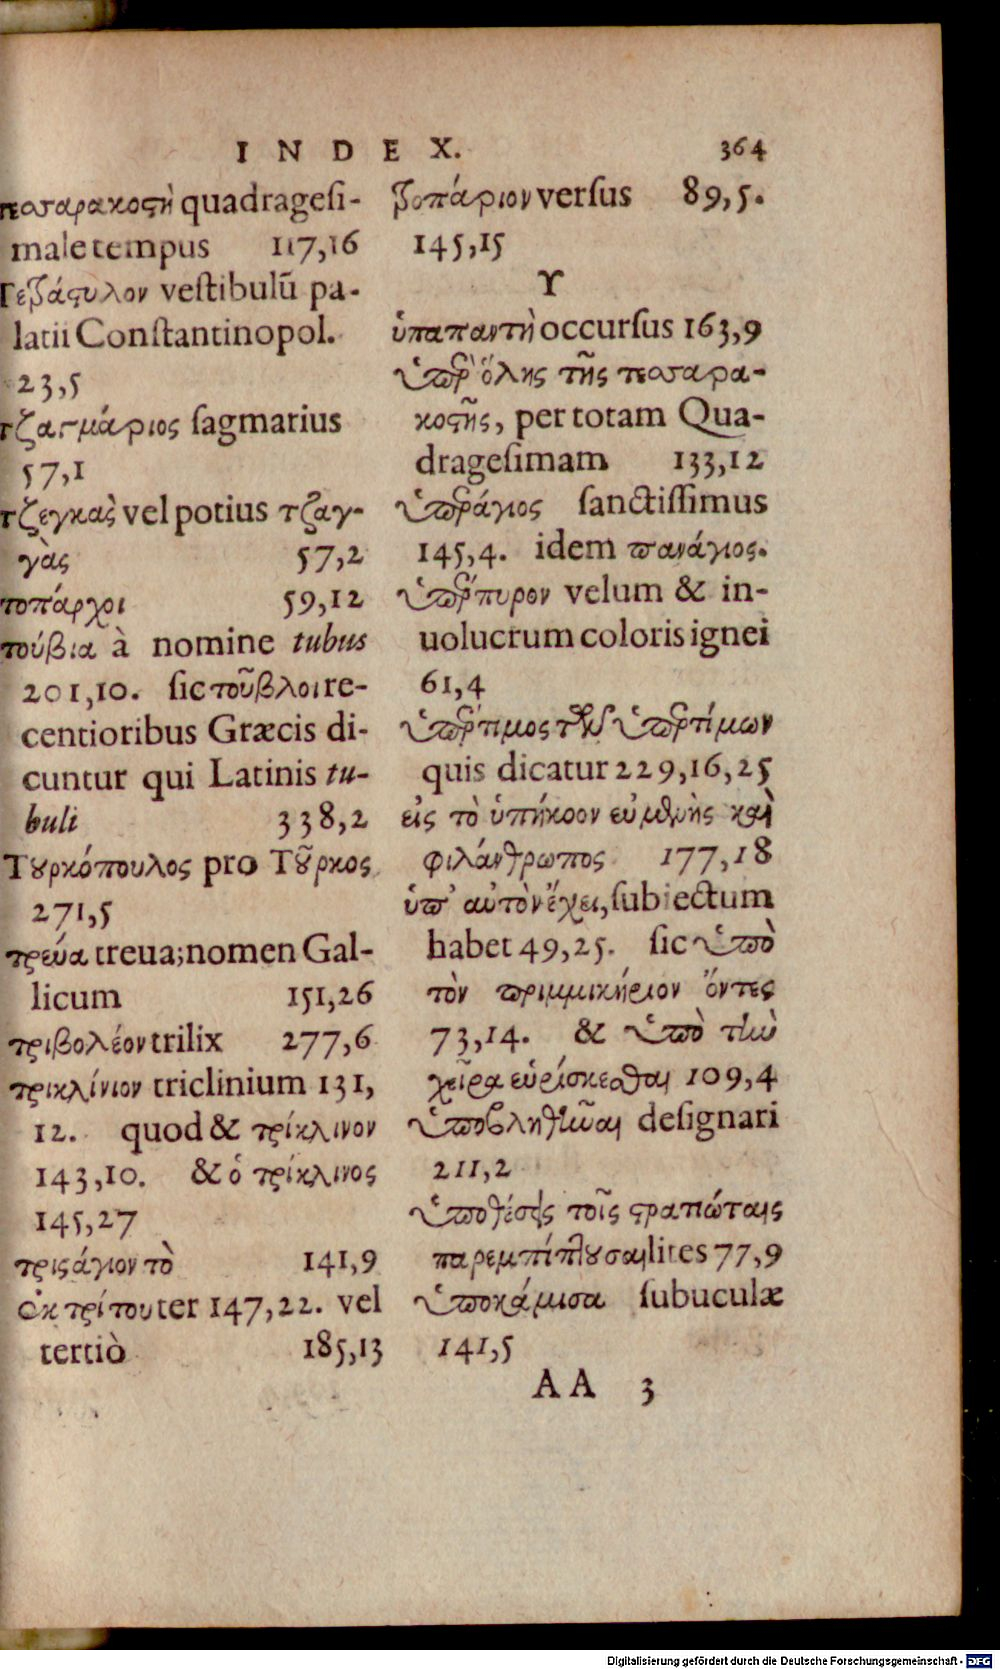 INDEX. 364
τεσσαρακοστὴ quadragesi-
male tempus 117,16
Τεβάστυλον vestibulũ pa-
latii Constantinopol.
23,5
τζαγμάριος sagmarius
57,1
τζεγκας vel potius τζαγ-
γὰς 57,2
τοπάρχοι 59,12
τούβια à nomine tubus
201,10. sic τοῦβλοι re-
centioribus Græcis di-
cuntur qui Latinis tu-
buli 338,2
Τȣρκόπουλος pro Τȣ͂ρκος
271,5
τρεύα treua; nomen Gal-
licum 151,26
τριβολέον trilix 277,6
τρικλίνιον triclinium 131,
12. quod & τρίκλινον
143,10. & ὁ τρίκλινος
145,27
τρισάγιον τὸ 141,9
ἐκ τρίτου ter 147,22. vel
tertiò 185,13
βοπάριον versus 89,5.
145,15
Υ
ὑπαπαντὴ occursus 163,9
ὑπὲρ ὅλης τῆς τεσσαρα-
κοστῆς, per totam Qua-
dragesimam 133,12
ὑπεράγιος sanctissimus
145,4. idem πανάγιος.
ὑπέρπυρον velum & in-
uolucrum coloris ignei
61,4
ὑπέρτιμος τῶν ὑπερτίμων
quis dicatur 229,16,25
εἰς τὸ ὑπήκοον εὐμενὴς καὶ
φιλάνθρωπος 177,18
ὑπ' αὐτὸν ἔχει, subiectum
habet 49,25. sic ὑπὸ
τὸν πριμμικήριον ὄντες
73,14. & ὑπὸ τὴν
χεῖρα εὑρίσκεσθαι 109,4
ὑποβληθῆναι designari
211,2
ὑποθέσεις τοῖς στρατιώταις
παρεμπίπτȣσαι lites 77,9
ὑποκάμισα subuculæ
141,5
AA 3
Digitalisierung gefördert durch die Deutsche Forschungsgemeinschaft - DFG